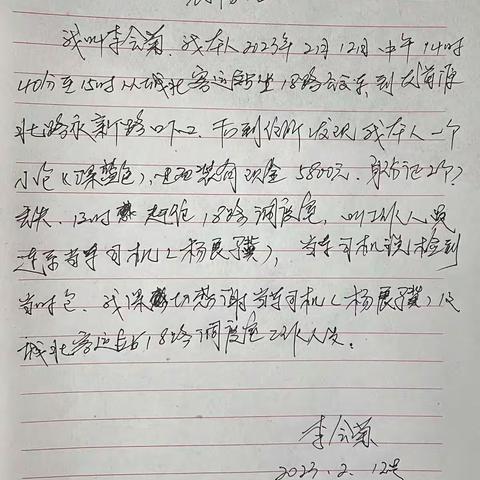 我叫李会菊. 我本人2023年2月12日中午14时
40分至15时从城北客运站坐18路公交车到友前源
北路永新路口下. 后到住所发现我本人一个
小包(深蓝色), 里面装有现金5800元. 身份证2个,
丢失. 15时 赶往18路调度室, 叫工作人员
连系当车司机(杨展骥), 当车司机说检到
当时包. 我深 切感谢当车司机(杨展骥)及
城北客运站18路调度室工作人员.
李会菊
2023.2.12号